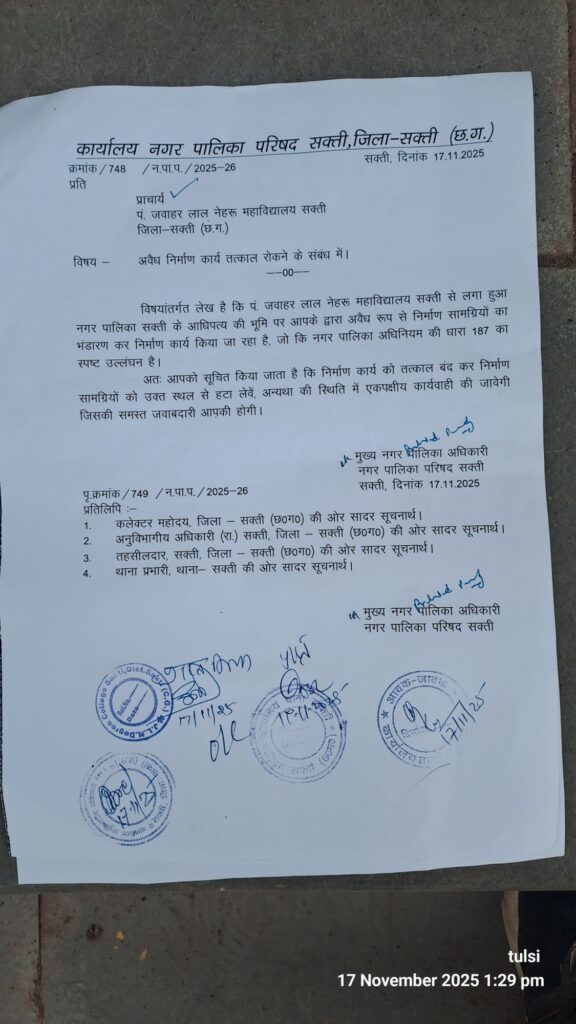 कार्यालय नगर पालिका परिषद सक्ती,जिला-सक्ती (छ.ग.)
क्रमांक/748 /न.पा.प./2025-26 सक्ती, दिनांक 17.11.2025
प्रति
प्राचार्य
पं. जवाहर लाल नेहरू महाविद्यालय सक्ती
जिला-सक्ती (छ.ग.)
विषय – अवैध निर्माण कार्य तत्काल रोकने के संबंध में।
—00—
विषयांतर्गत लेख है कि पं. जवाहर लाल नेहरू महाविद्यालय सक्ती से लगा हुआ
नगर पालिका सक्ती के आधिपत्य की भूमि पर आपके द्वारा अवैध रूप से निर्माण सामग्रियों का
भंडारण कर निर्माण कार्य किया जा रहा है, जो कि नगर पालिका अधिनियम की धारा 187 का
स्पष्ट उल्लंघन है।
अतः आपको सूचित किया जाता है कि निर्माण कार्य को तत्काल बंद कर निर्माण
सामग्रियों को उक्त स्थल से हटा लेवें, अन्यथा की स्थिति में एकपक्षीय कार्यवाही की जावेगी
जिसकी समस्त जवाबदारी आपकी होगी।
मुख्य नगर पालिका अधिकारी
नगर पालिका परिषद सक्ती
सक्ती, दिनांक 17.11.2025
पृ.क्रमांक/749 /न.पा.प./2025-26
प्रतिलिपि :–
1. कलेक्टर महोदय, जिला – सक्ती (छ0ग0) की ओर सादर सूचनार्थ।
2. अनुविभागीय अधिकारी (रा.) सक्ती, जिला – सक्ती (छ0ग0) की ओर सादर सूचनार्थ।
3. तहसीलदार, सक्ती, जिला – सक्ती (छ0ग0) की ओर सादर सूचनार्थ।
4. थाना प्रभारी, थाना– सक्ती की ओर सादर सूचनार्थ।
मुख्य नगर पालिका अधिकारी
नगर पालिका परिषद सक्ती
J.L.N.Degree College Sakti,Dist.Sakti (C.G.)
17/11/25
आवक-जावक
17/11/25
tulsi
17 November 2025 1:29 pm